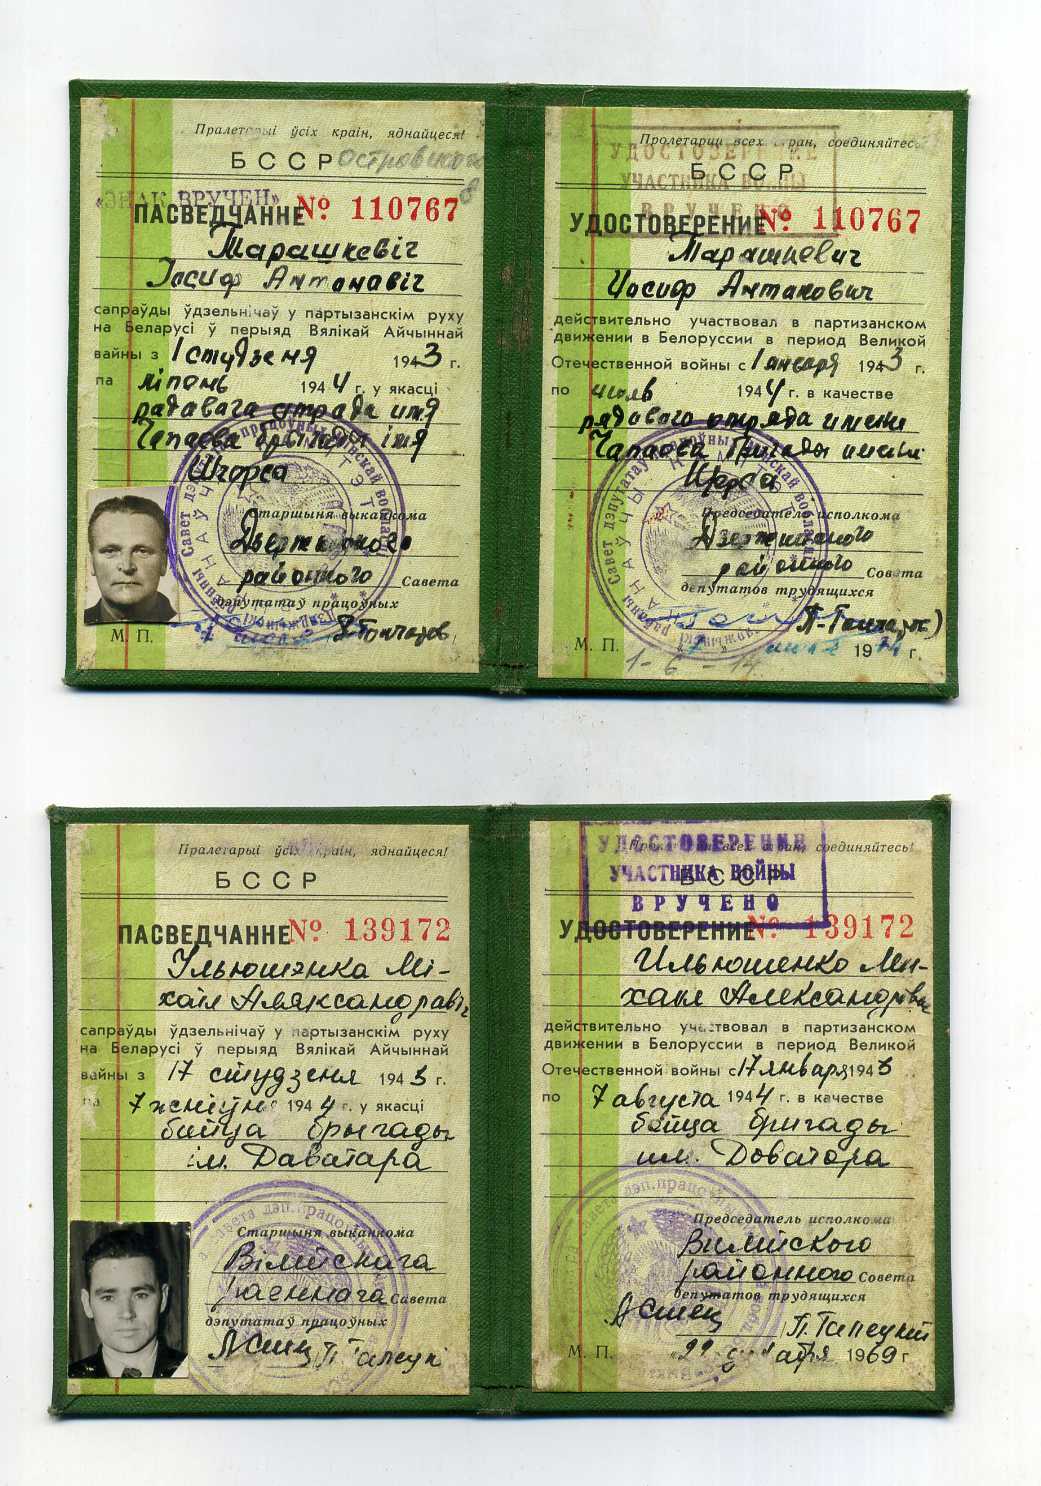 Пралетарыі ўсіх краін, яднайцеся!
БССР
«ЗНАК ВРУЧЕН»
ПАСВЕДЧАННЕ № 110767
Тарашкевіч
Іосиф Антонавіч
сапраўды ўдзельнічаў у партызанскім руху
на Беларусі ў перыяд Вялікай Айчыннай
вайны з 1 студзеня 1943 г.
па ліпень 1944 г. у якасці
радавага атрада імя
Чапаева брыгады імя
Шчорса
Старшыня выканкома
Дзержинского
районного Савета
дэпутатаў працоўных
М. П.
Пролетарии всех стран, соединяйтесь!
УДОСТОВЕРЕНИЕ
УЧАСТНИКА ВОЙНЫ
ВРУЧЕНО
БССР
УДОСТОВЕРЕНИЕ № 110767
Тарашкевич
Иосиф Антонович
действительно участвовал в партизанском
движении в Белоруссии в период Великой
Отечественной войны с 1 января 1943 г.
по июль 1944 г. в качестве
рядового отряда имени
Чапаева бригады имени
Председатель исполкома
Дзержинского
районного Совета
депутатов трудящихся
М. П. 19 г.
1-6-14
Пралетарыі ўсіх краін, яднайцеся!
БССР
ПАСВЕДЧАННЕ № 139172
Ільюшэнка Мі-
хаіл Аляксандравіч
сапраўды ўдзельнічаў у партызанскім руху
на Беларусі ў перыяд Вялікай Айчыннай
вайны з 17 студзеня 1943 г.
па 7 жніўня 1944 г. у якасці
байца брыгады
ім. Даватара
Старшыня выканкома
Вілейскага
раённага Савета
дэпутатаў працоўных
Пролетарии всех стран, соединяйтесь!
УДОСТОВЕРЕНИЕ
УЧАСТНИКА ВОЙНЫ
ВРУЧЕНО
БССР
УДОСТОВЕРЕНИЕ № 139172
Ильюшенко Ми-
хаил Александрович
действительно участвовал в партизанском
движении в Белоруссии в период Великой
Отечественной войны с 17 января 1943
по 7 августа 1944 г. в качестве
бойца бригады
им. Доватора
Председатель исполкома
Вилейского
районного Совета
депутатов трудящихся
М. П. 1969 г.